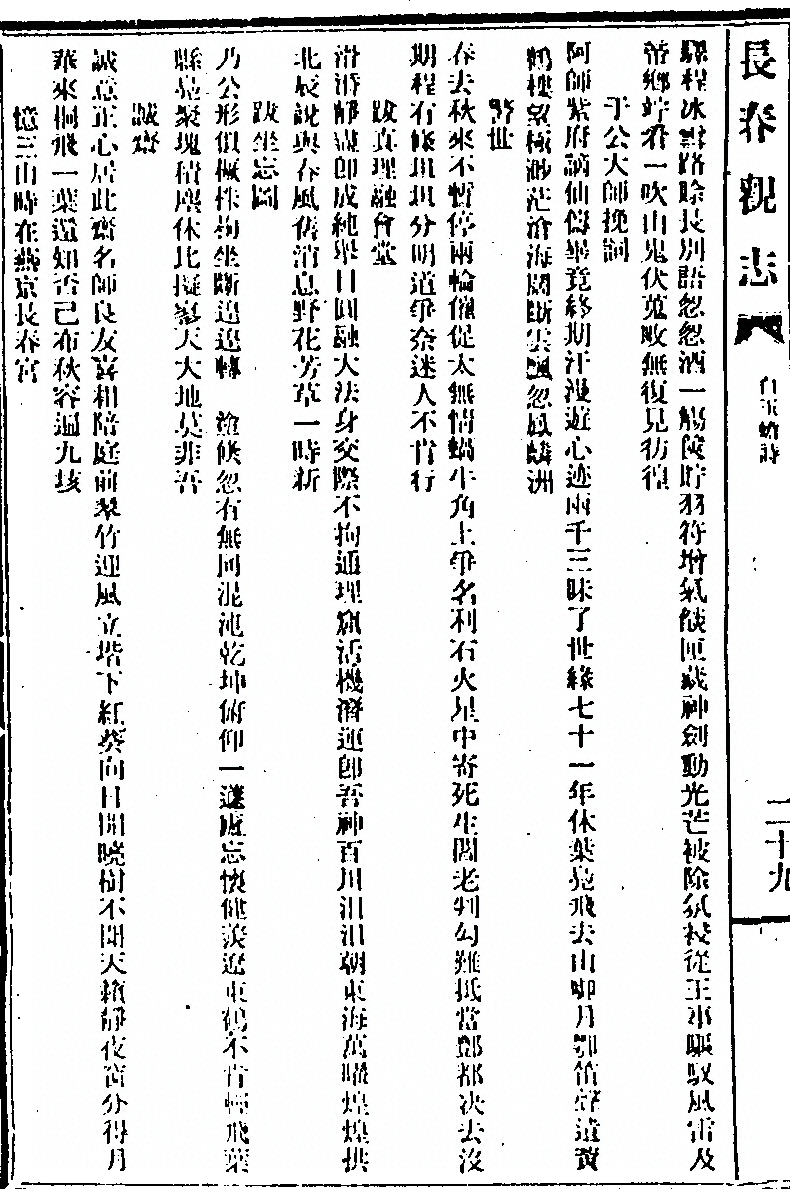 長春觀志
白玉蟾詩
二十九
驛程冰雪路賒長別語忽忽酒一觴陵貯羽符增氣燄匣藏神劍動光芒被除氛祲從王事驅馭風雷及
蒂鄉竚看一吹山鬼伏蒐敗無復見彷徨
于公大師挽詞
阿師紫府謫仙儔畢竟終期汗漫遊心迹兩千三昧了世緣七十一年休葉鳧飛去山啣月鄂笛聲遺黃
鶴樓望極渺茫滄海闊斷雲飄忽鳳麟洲
警世
春去秋來不暫停兩輪催促太無情蝸牛角上爭名利石火星中寄死生閻老判勾難抵當酆都决去沒
期程有條坦坦分明道爭奈迷人不肯行
跋真理融會堂
滑滑都盡卽成純舉目圓融大法身交際不拘通理窟活機潛運卽吾神百川汨汨朝東海萬曜煌煌拱
北辰說與春風舊消息野花芳草一時新
跋坐忘圖
乃公形俱概株拘坐斷遑遑轉 滄倏忽有無同混沌乾坤俯仰一蘧廬忘懷健羨遼東鶴不肯輕飛葉
縣鳧聚塊積塵休比擬寥天大地莫非吾
誠齋
誠意正心居此齋名師良友喜相陪庭前翠竹迎風立堦下紅葵向日開曉樹不聞天籟靜夜窗分得月
華來桐飛一葉還知否已布秋容遍九垓
憶三山時在燕京長春宮